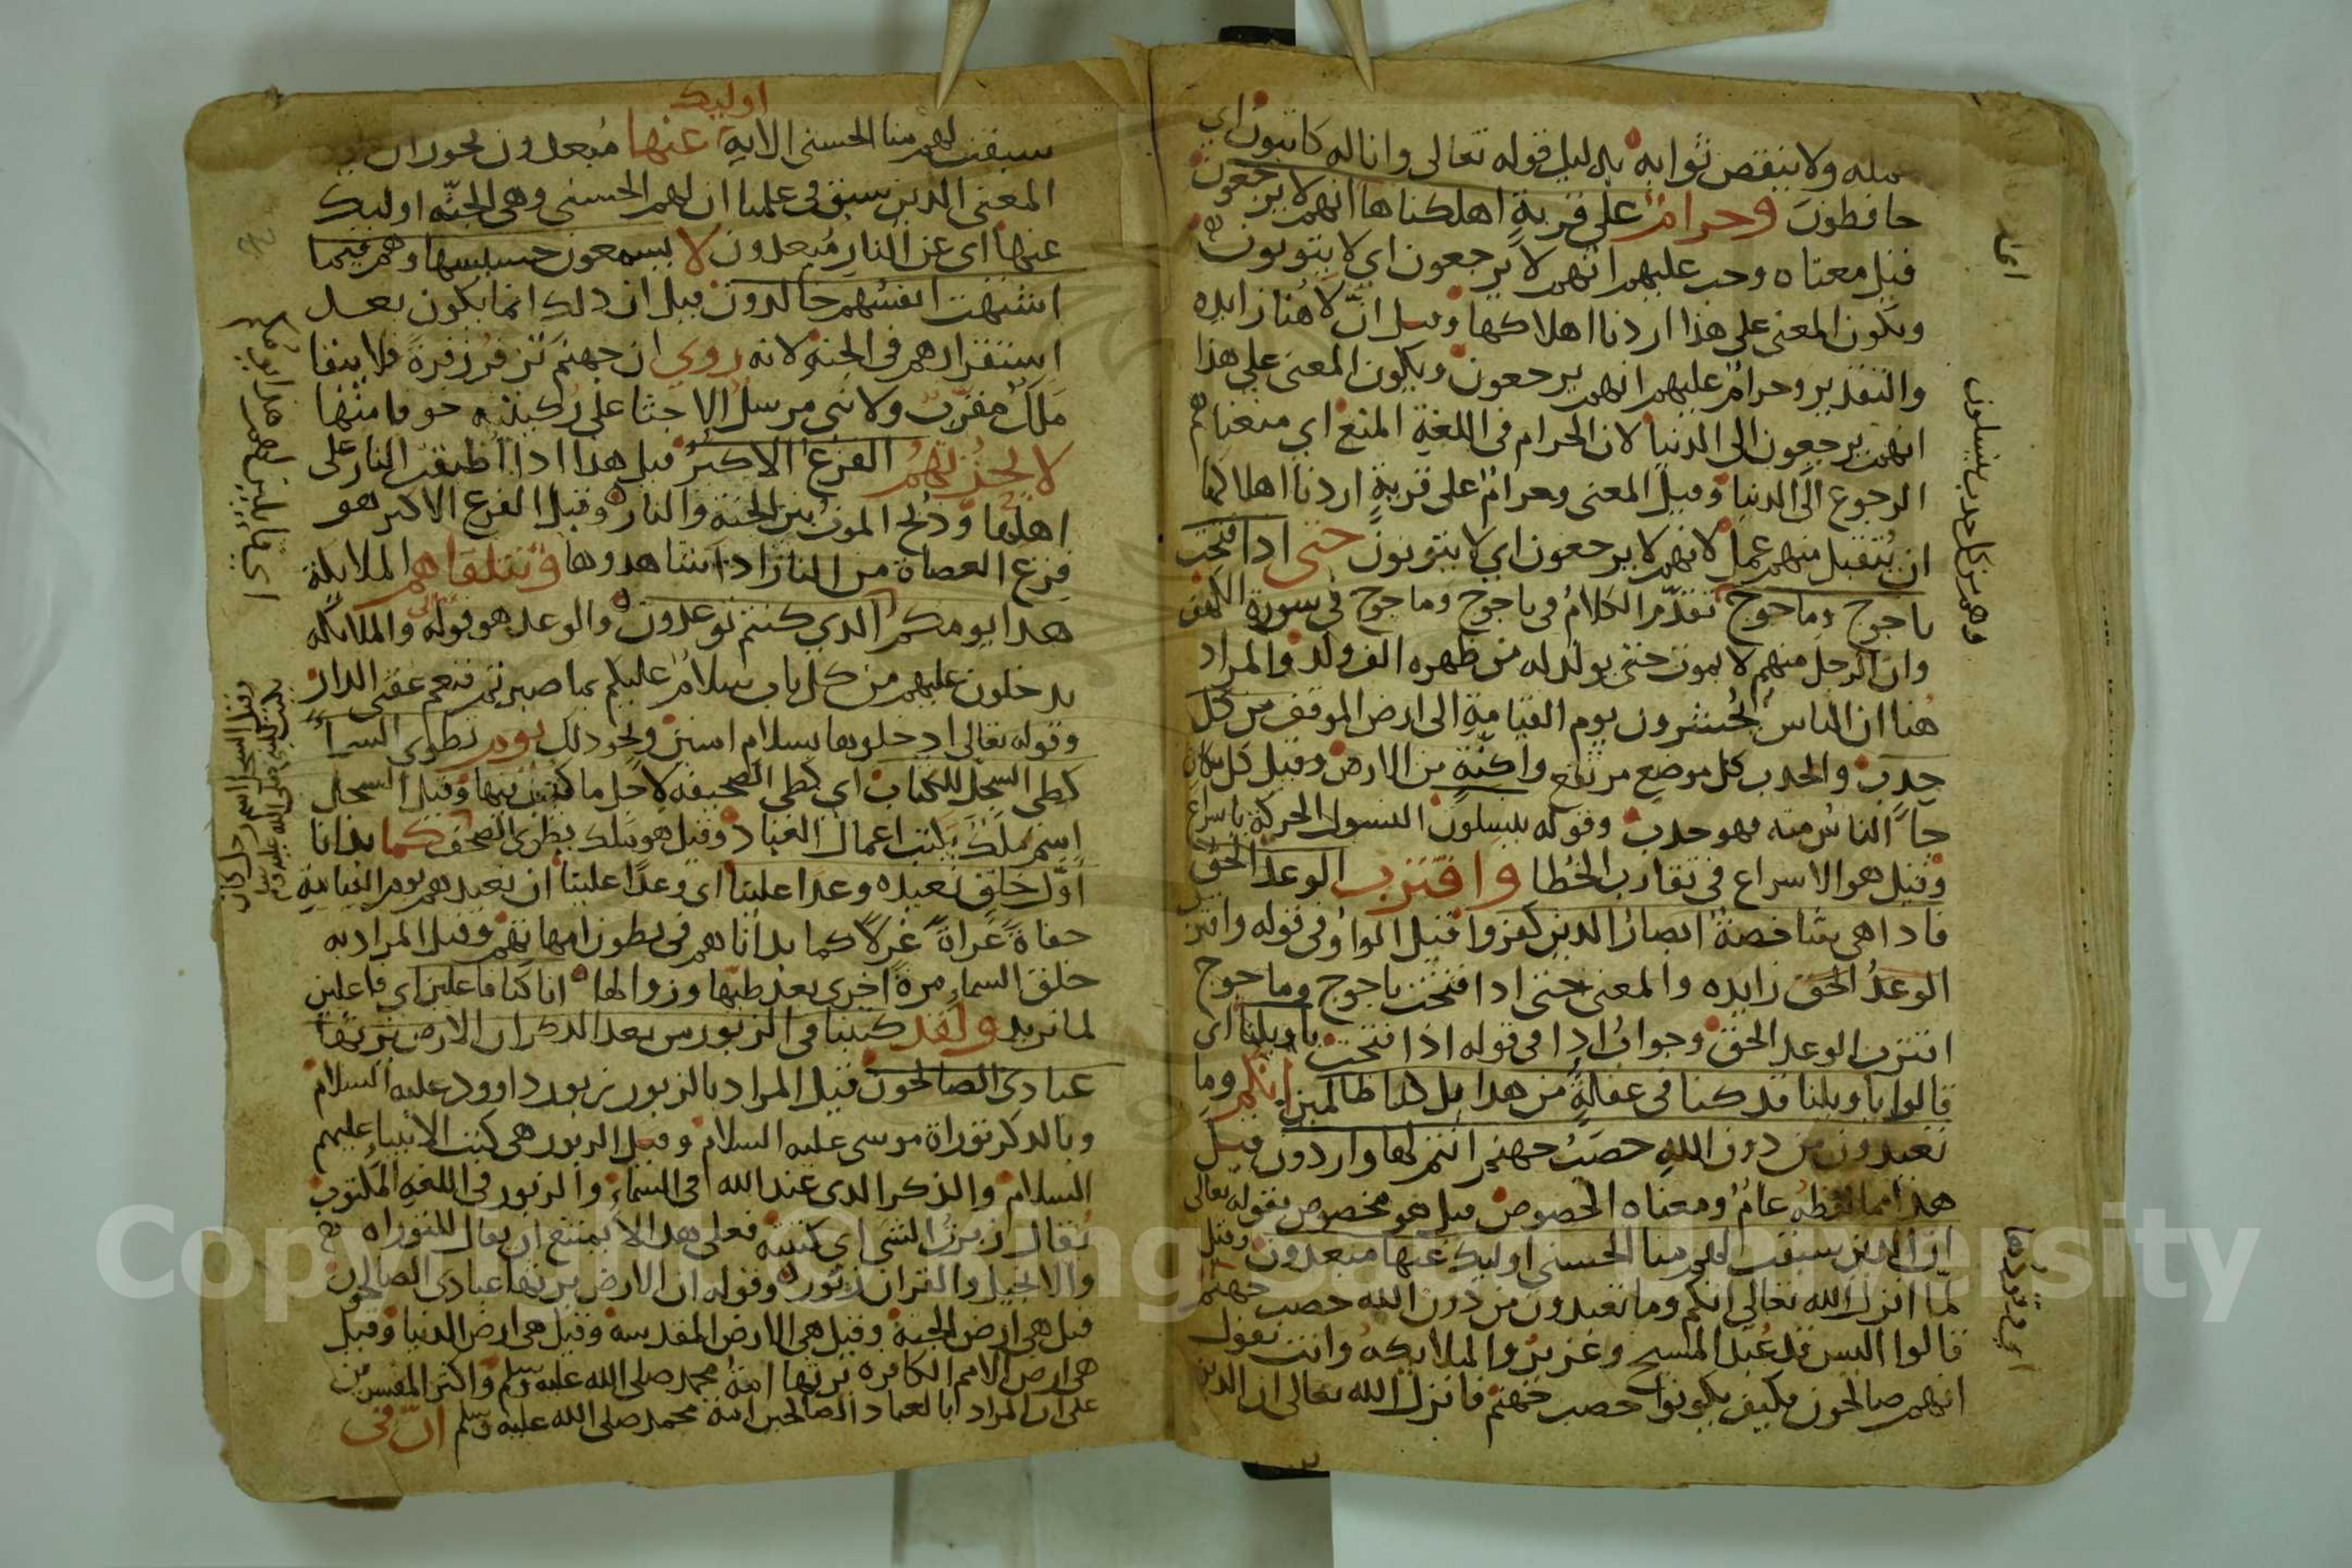 عمله ولا ينقص ثوابه بدليل قوله تعالى وانا له كاتبون اي
حافظون وحرام على قرية اهلكناها انهم لا يرجعون
قيل معناه وجب عليهم انهم لا يرجعون اي لا يتوبون
ويكون المعنى على هذا اردنا اهلاكها وقيل ان لا هنا زايده
والتقدير وحرام عليهم انهم يرجعون ويكون المعنى على هذا
انهم يرجعون الى الدنيا لان الحرام في اللغة المنع اي منعناهم
الرجوع الى الدنيا وقيل المعنى وحرام على قرية اردنا اهلاكها
ان يتقبل منهم عمل لانهم لا يرجعون اي لا يتوبون حتى اذا فتحت
ياجوج وماجوج تقدم الكلام في ياجوج وماجوج في سورة الكهف
وان الرجل منهم لا يموت حتى يولد له من ظهره الف ولد والمراد
هنا ان الناس يحشرون يوم القيامة الى ارض الموقف من كل
حدب والحدب كل موضع مرتفع واكمة من الارض وقيل كل مكان
جا الناس منه فهو حدب وقوله ينسلون النسول الحركة باسراع
وقيل هو الاسراع في تقارب الخطا واقترب الوعد الحق
فاذا هي شاخصة ابصار الذين كفروا قيل الواو في قوله واقترب
الوعد الحق زايده والمعنى حتى اذا فتحت ياجوج وماجوج
اقترب الوعد الحق وجواب اذا في قوله اذا فتحت يا ويلنا اي
قالوا يا ويلنا قد كنا في غفلة من هذا بل كنا ظالمين انكم وما
تعبدون من دون الله حصب جهنم انتم لها واردون قيل
هذا مما لفظه عام ومعناه الخصوص قيل هو مخصوص بقوله تعالى
ان الذين سبقت لهم منا الحسنى اوليك عنها مبعدون وقيل
لما انزل الله تعالى انكم وما تعبدون من دون الله حصب جهنم
قالوا اليس قد عبد المسيح وعزير والملايكه وانت تقول
انهم صالحون فكيف يكونوا حصب جهنم فانزل الله تعالى ان الذين
وهم من كل حدب ينسلون
اي وقودها
اوليك
سبقت لهم منا الحسنى الاية عنها مبعدون يجوز ان
المعنى الذين سبق في علمنا ان لهم الحسنى وهي الجنه اوليك
عنها اي عن النار مبعدون لا يسمعون حسيسها وهم فيما
اشتهت انفسهم خالدون قيل ان ذلك انما يكون بعد
استقرارهم في الجنة لانه روي ان جهنم تزفر زفرة فلا يبقا
ملك مقرب ولا نبي مرسل الا جثا على ركبتيه خوفا منها
لا يحزنهم الفزع الاكبر قيل هذا اذا اطبقت النار على
اهلها وذبح الموت بين الجنة والنار وقيل الفزع الاكبر هو
فزع العصاة من النار اذا شاهدوها وتتلقاهم الملايكة
هذا يومكم الذي كنتم توعدون والوعد هو قوله تعالى والملايكه
يدخلون عليهم من كل باب سلام عليكم بما صبرتم فنعم عقبى الدار
وقوله تعالى ادخلوها بسلام امنين ونحو ذلك يوم نطوي السما
كطي السجل للكتاب اي كطي الصحيفه لاجل ما كتب فيها وقيل السجل
اسم ملك يكتب اعمال العباد وقيل هو ملك يطوي الصحف كما بدانا
اول خلق نعيده وعدا علينا اي وعدا علينا ان نعيدهم يوم القيامة
حفاة عراة غرلا كما بداناهم في بطون امهاتهم وقيل المراد به
خلق السماء مرة اخرى بعد طيها وزوالها انا كنا فاعلين اي فاعلين
لما نريد ولقد كتبنا في الزبور من بعد الذكر ان الارض يرثها
عبادي الصالحون قيل المراد بالزبور زبور داوود عليه السلام
وبالذكر توراة موسى عليه السلام وقيل الزبور هي كتب الانبياء عليهم
السلام والذكر الذي عند الله في السماء والزبور في اللغه المكتوب
يقال زبرت الشي اي كتبته فعلى هذا لا يمتنع ان يقال للتوراه
والانجيل والقران زبور وقوله ان الارض يرثها عبادي الصالحون
قيل هي ارض الجنة وقيل هي الارض المقدسه وقيل هي ارض الدنيا وقيل
هي ارض الامم الكافره يرثها امة محمد صلى الله عليه وسلم واكثر المفسرين
على ان المراد بالعباد الصالحين امة محمد صلى الله عليه وسلم ان في
اي قايلين لهم هذا يومكم
وقيل السجل اسم رجل كان
يكتب للنبي صلى الله عليه وسلم
Copyright © King Saud University